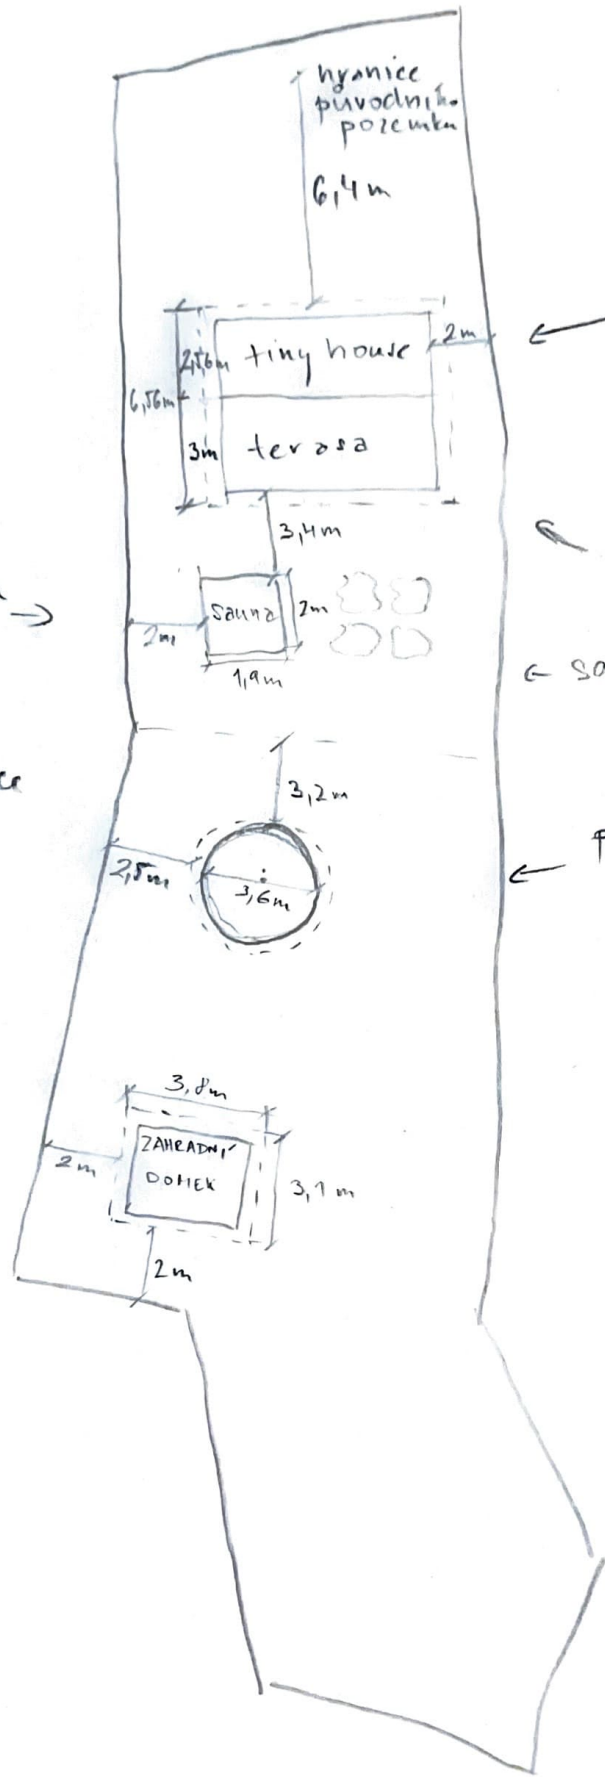 hranice
původního
pozemku
6,4m
2m
2,56m
tiny house
6,56m
3m
terasa
3,4m
sauna
2m
2m
1,9m
3,2m
2,5m
3,6m
3,8m
ZAHRADNÍ
DOMEK
2m
3,1m
2m